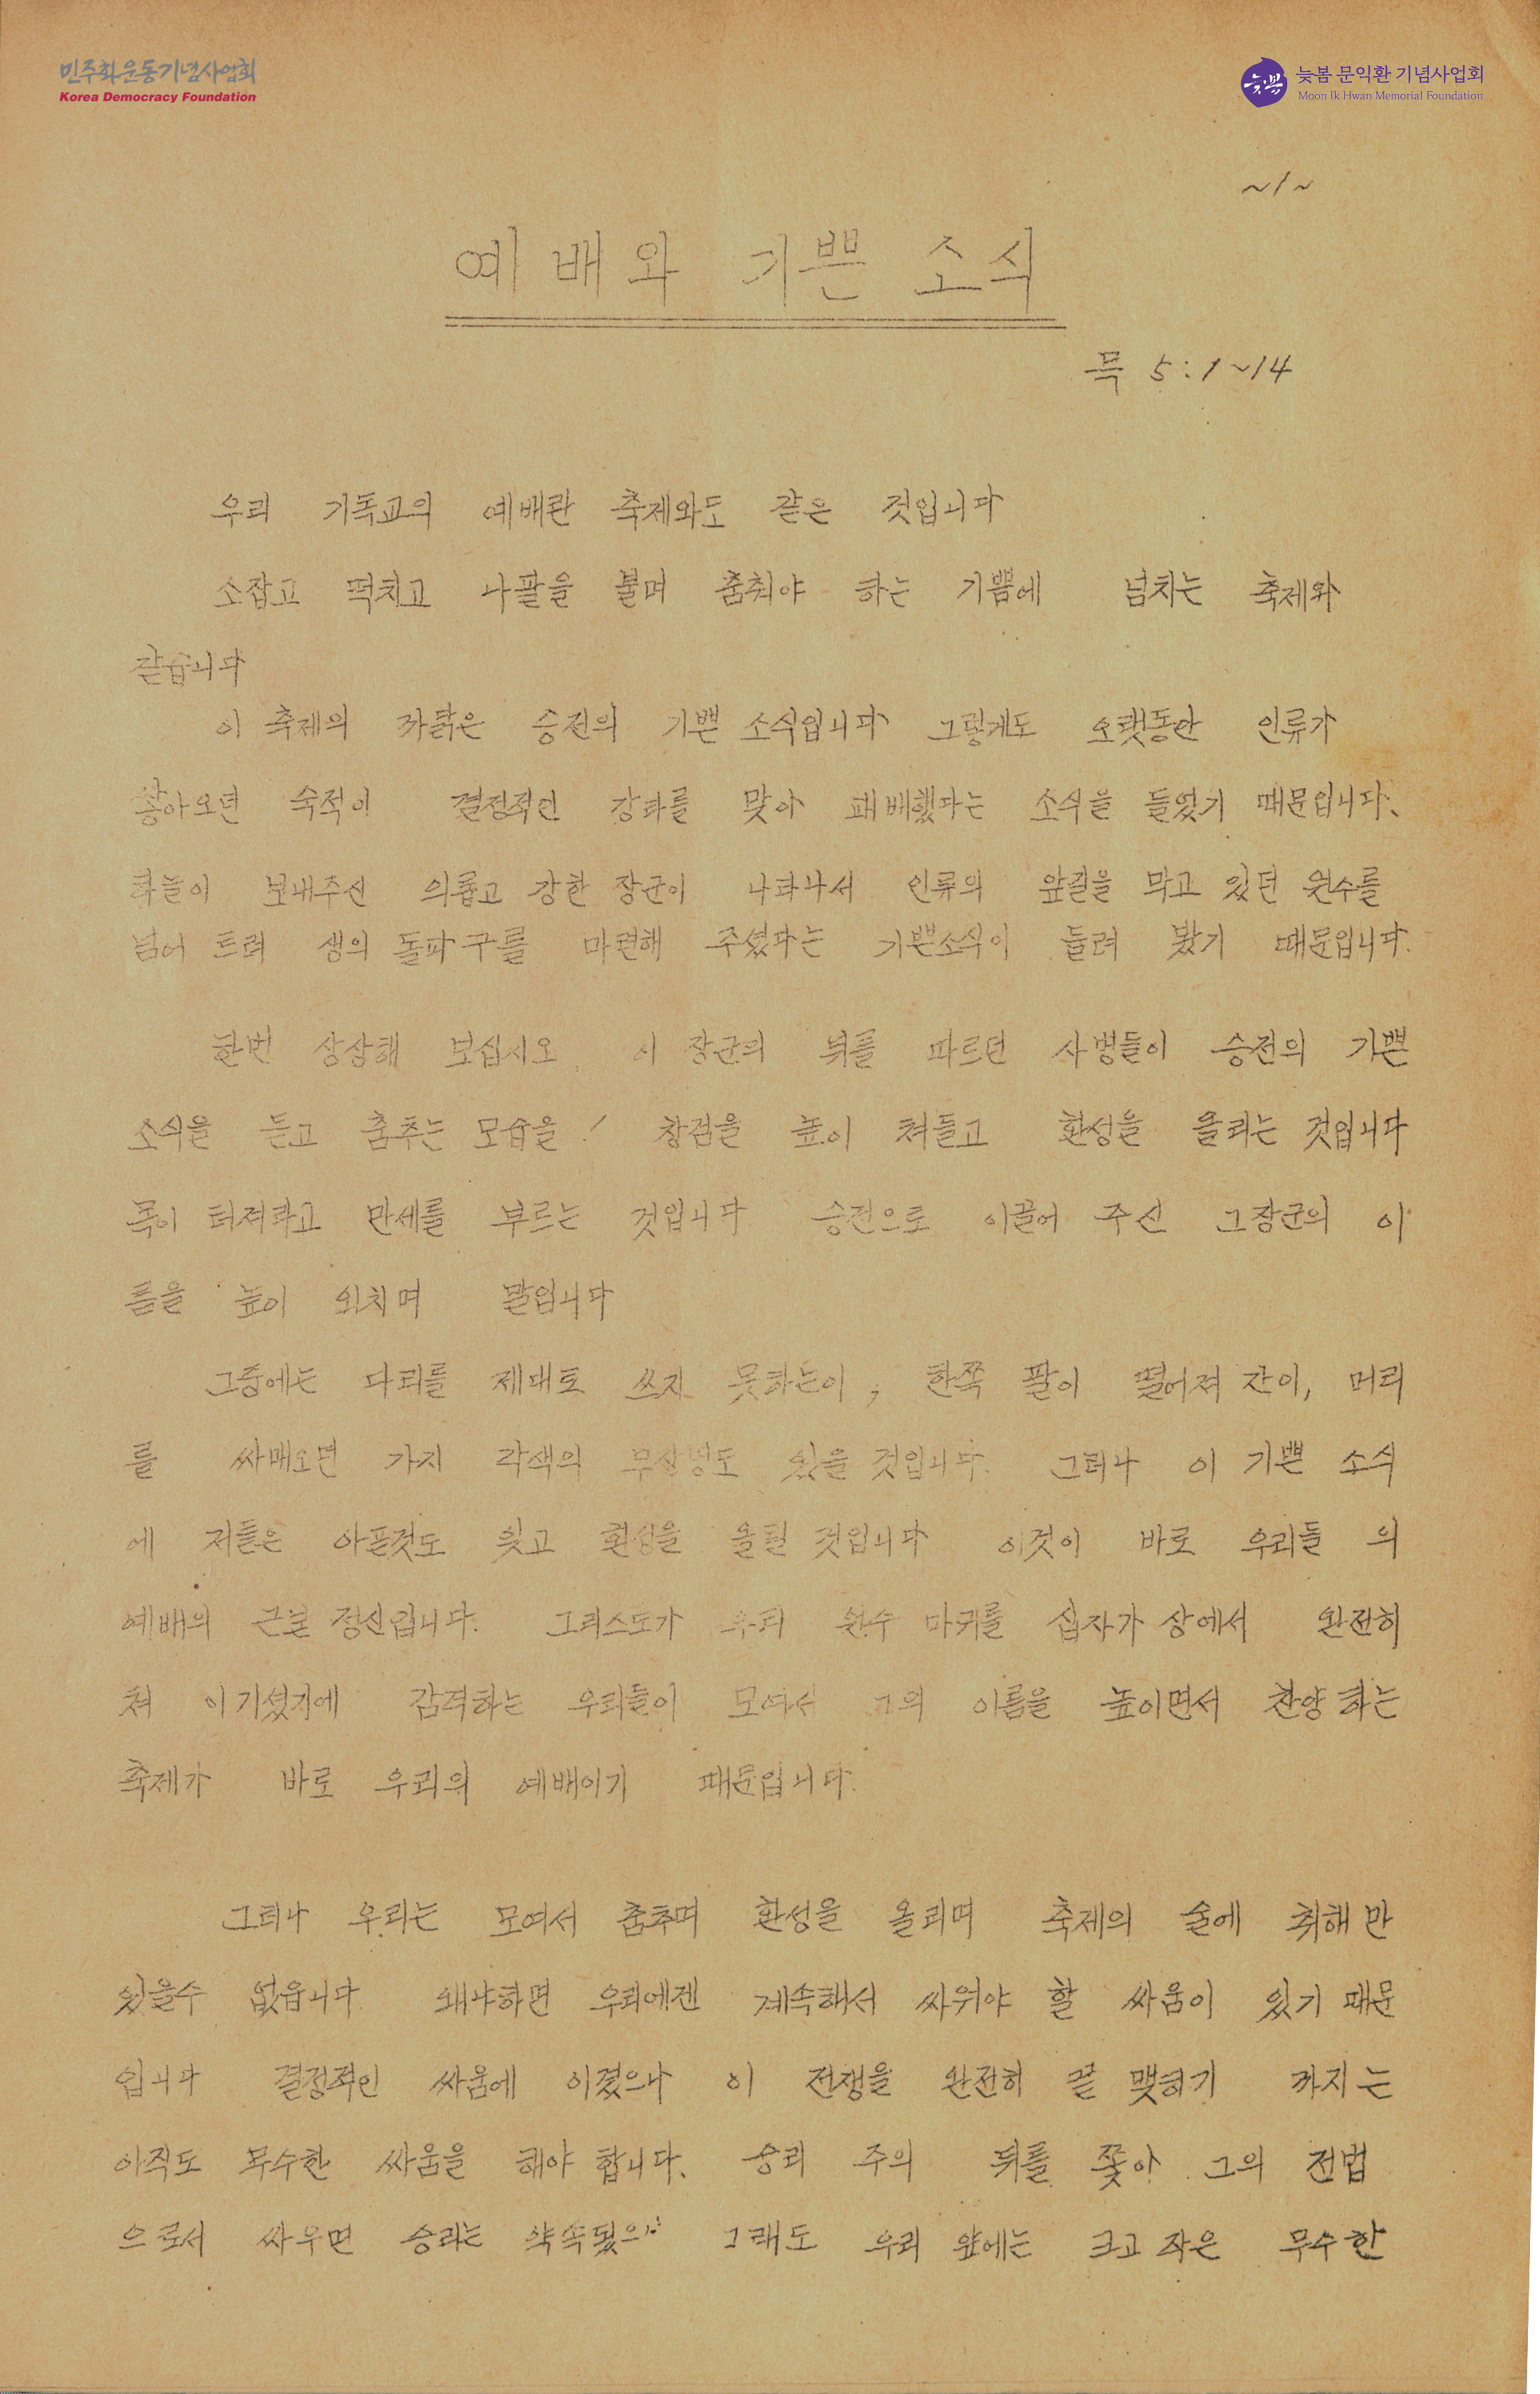 민주화운동기념사업회
Korea Democracy Foundation
늦봄
늦봄 문익환 기념사업회
Moon Ik Hwan Memorial Foundation
~1~
예배와 기쁜 소식
묵 5:1~14
우리 기독교의 예배란 축제와도 같은 것입니다
소잡고 떡치고 나팔을 불며 춤춰야 하는 기쁨에 넘치는 축제와
같습니다
이 축제의 까닭은 승전의 기쁜 소식입니다 그렇게도 오랫동안 인류가
쫓아오던 숙적이 결정적인 강타를 맞아 패배했다는 소식을 들었기 때문입니다.
하늘이 보내주신 의롭고 강한 장군이 나타나서 인류의 앞길을 막고 있던 원수를
넘어 트려 생의 돌파구를 마련해 주셨다는 기쁜소식이 들려 왔기 때문입니다.
한번 상상해 보십시오 이 장군의 뒤를 따르던 사병들이 승전의 기쁜
소식을 듣고 춤추는 모습을! 창검을 높이 쳐들고 환성을 올리는 것입니다
목이 터져라고 만세를 부르는 것입니다 승전으로 이끌어 주신 그장군의 이
름을 높이 외치며 말입니다
그중에는 다리를 제대로 쓰지 못하는이, 한쪽 팔이 떨어져 간이, 머리
를 싸매오면 가지 각색의 부상병도 있을 것입니다. 그러나 이 기쁜 소식
에 저들은 아픈것도 잊고 환성을 올릴 것입니다 이것이 바로 우리들 의
예배의 근본 정신입니다. 그리스도가 우리 원수 마귀를 십자가 상에서 완전히
쳐 이기셨기에 감격하는 우리들이 모여서 그의 이름을 높이면서 찬양하는
축제가 바로 우리의 예배이기 때문입니다.
그러나 우리는 모여서 춤추며 환성을 올리며 축제의 술에 취해만
있을수 없읍니다 왜냐하면 우리에겐 계속해서 싸워야 할 싸움이 있기 때문
입니다 결정적인 싸움에 이겼으나 이 전쟁을 완전히 끝 맺히기 까지는
아직도 무수한 싸움을 해야 합니다. 승리 주의 뒤를 쫓아 그의 전법
으로서 싸우면 승리는 약속됬으 그래도 우리 앞에는 크고 작은 무수한